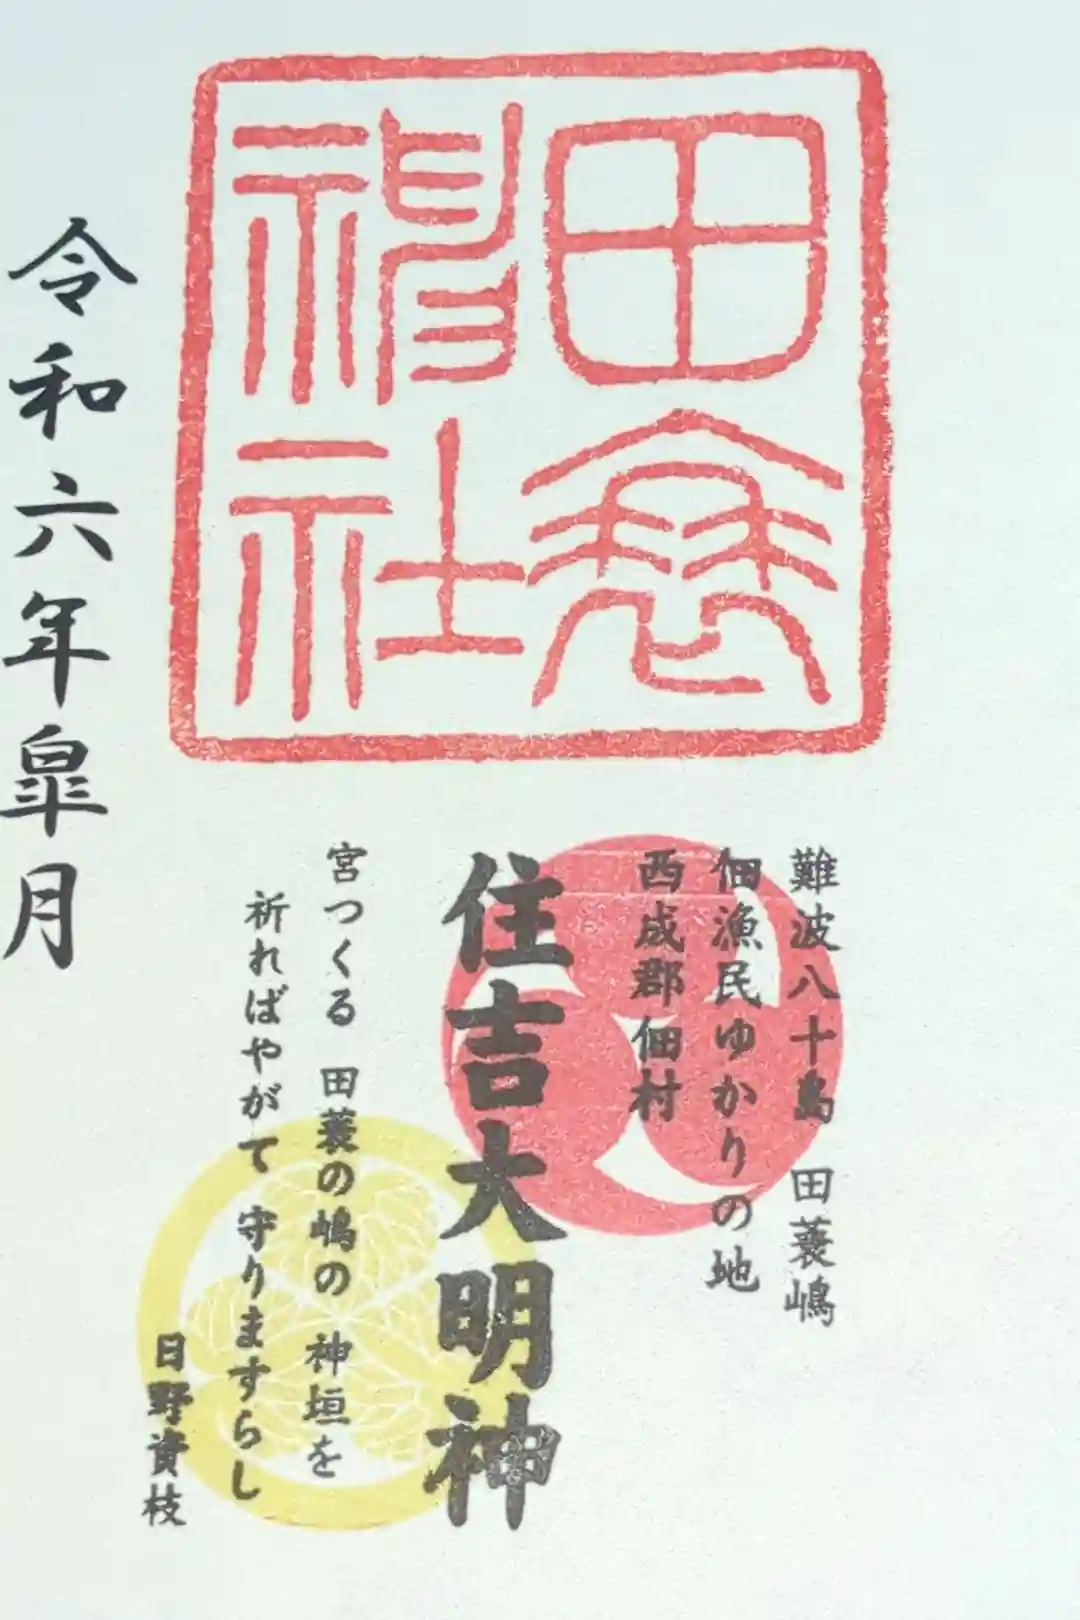 田蓑神社
難波八十島 田蓑嶋
佃漁民ゆかりの地
西成郡佃村
住吉大明神
宮つくる 田蓑の嶋の 神垣を
祈ればやがて 守りますらし
日野資枝
令和六年皐月